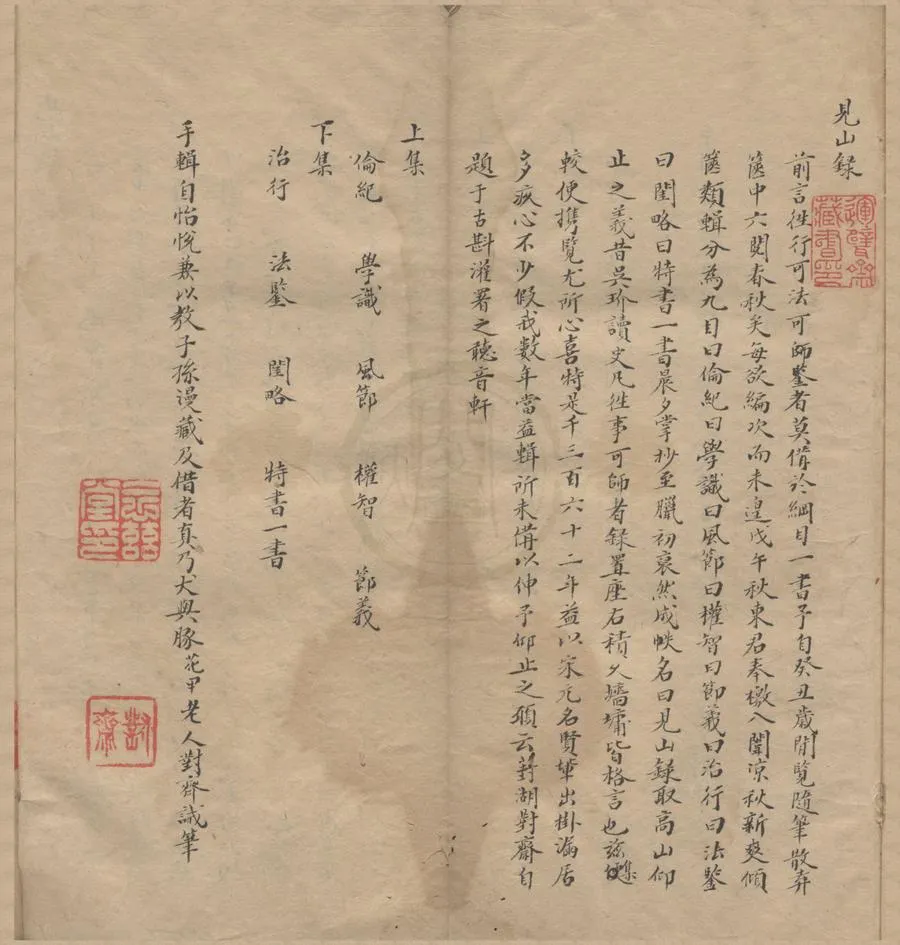 見山録
前言徃行可法可師鑒者莫備於綱目一書予自癸丑歲閒覽隨筆散弃
篋中六閱春秋矣每欲編次而未遑戊午秋東君奉檄入闈凉秋新爽傾
篋類輯分為九目曰倫紀曰學識曰風節曰權智曰節義曰治行曰法鑒
曰閨略曰特書一書晨夕掌抄至臘初裒然成帙名曰見山録取高山仰
止之義昔吳玠讀史凡徃事可師者錄置座右積久墻墉皆格言也茲集
較便携覽尤所心喜特是千三百六十二年益以宋元名賢輩出掛漏居
多疚心不少假我數年當益輯所未備以伸予仰止之願云葑湖對齋自
題于古斟灌署之聽音軒
上集
倫紀 學識 風節 權智 節義
下集
治行 法鑒 閨略 特書一書
手輯自怡悅兼以教子孫漫藏及借者真乃犬與豚花甲老人對齋識筆
藏書印
堂印
對齋